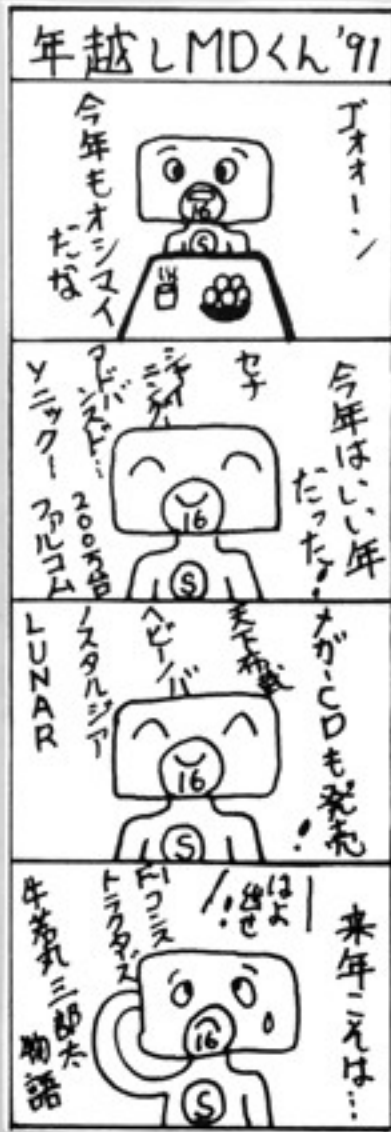 年越しMDくん'91
ゴオオーン
今年もオシマイ
だな
16
S
今年はいい年
だったな!
セナ
シャイニング…
アドバンスド…
200万台
ソニックー ファルコム
16
S
メガ-CDも発売!
天下布武
ヘビーノバ
ノスタルジア
LUNAR
16
S
来年こそは…
はよ
出せ
!!
F1コンス
トラクターズ
三部太
物語
16
S